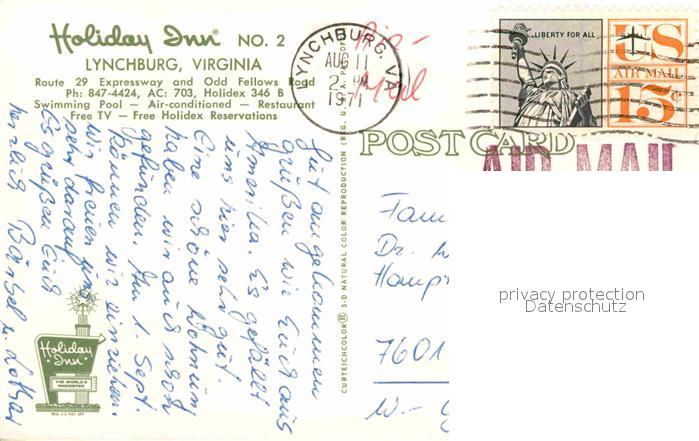 Holiday Inn® NO. 2
LYNCHBURG, VIRGINIA
Route 29 Expressway and Odd Fellows Road
Ph: 847-4424, AC: 703, Holidex 346 B
Swimming Pool — Air-conditioned — Restaurant
Free TV — Free Holidex Reservations
LYNCHBURG, VA
AUG 11
2 PM
1971
Air-
Mail
LIBERTY FOR ALL
US
AIR MAIL
15¢
POST CARD
AIR MAIL
Gut angekommen
grüßen wir Euch aus
Amerika. Es gefällt
uns hier sehr gut.
Eine schöne Wohnung
haben wir auch schon
gefunden. Am 1. Sept.
können wir einziehen.
Wir freuen uns
sehr darauf.
Es grüßen Euch
herzlich Bärbel u. Lothar
CURTEICHCOLOR® 3-D NATURAL COLOR REPRODUCTION (REG. U.S.A. PAT. OFF.
Fam
Dr.
Hamp
7601
W.-
privacy protection
Datenschutz
Holiday
Inn
THE WORLD'S
INNKEEPER
REG. U.S. PAT. OFF.